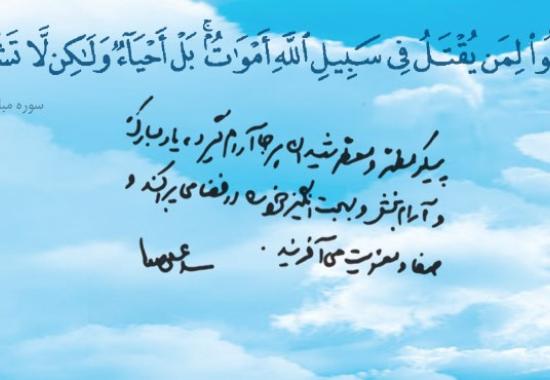 وا۟ لِمَن يُقْتَلُ فِى سَبِيلِ ٱللَّهِ أَمْوَٰتٌۢ ۚ بَلْ أَحْيَآءٌ وَلَٰكِن لَّا تَشْ
سوره مبا
پیکر مطهر و معطر شهیدان هر جا آرام گیرد، یاد مبارک
و آرام بخش و بهجت انگیز خود را در فضا می پراکند و
صفا و معنویت می آفریند.